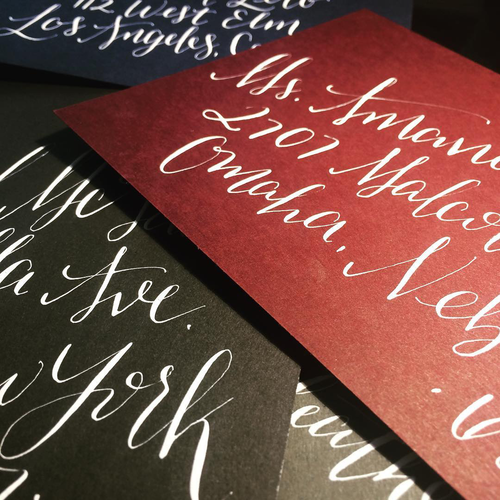 112 West Elm
Los Angeles, C
Ms. Aman
2707 Malco
Omaha, Neb
la Ave.
w York